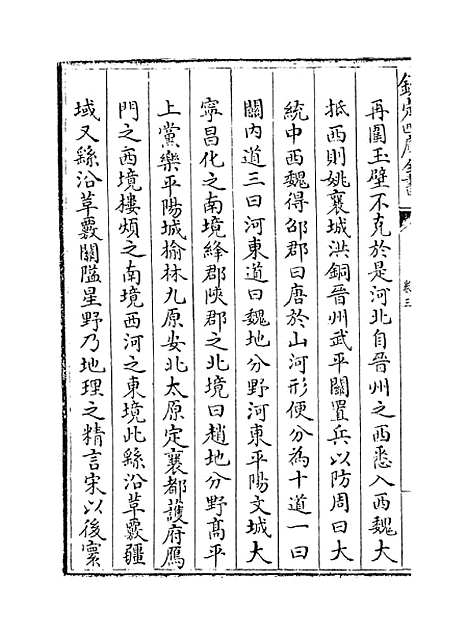 欽定四庫全書
卷三
再圍玉壁不克於是河北自晉州之西悉入西魏大
抵西則姚襄城洪銅晉州武平關置兵以防周曰大
統中西魏得邵郡曰唐於山河形便分為十道一曰
關內道三曰河東道曰魏地分野河東平陽文城大
寧昌化之南境絳郡陝郡之北境曰趙地分野高平
上黨樂平陽城榆林九原安北太原定襄都護府鴈
門之西境樓煩之南境西河之東境此繇沿革覈疆
域又繇沿草覈關隘星野乃地理之精言宋以後寰